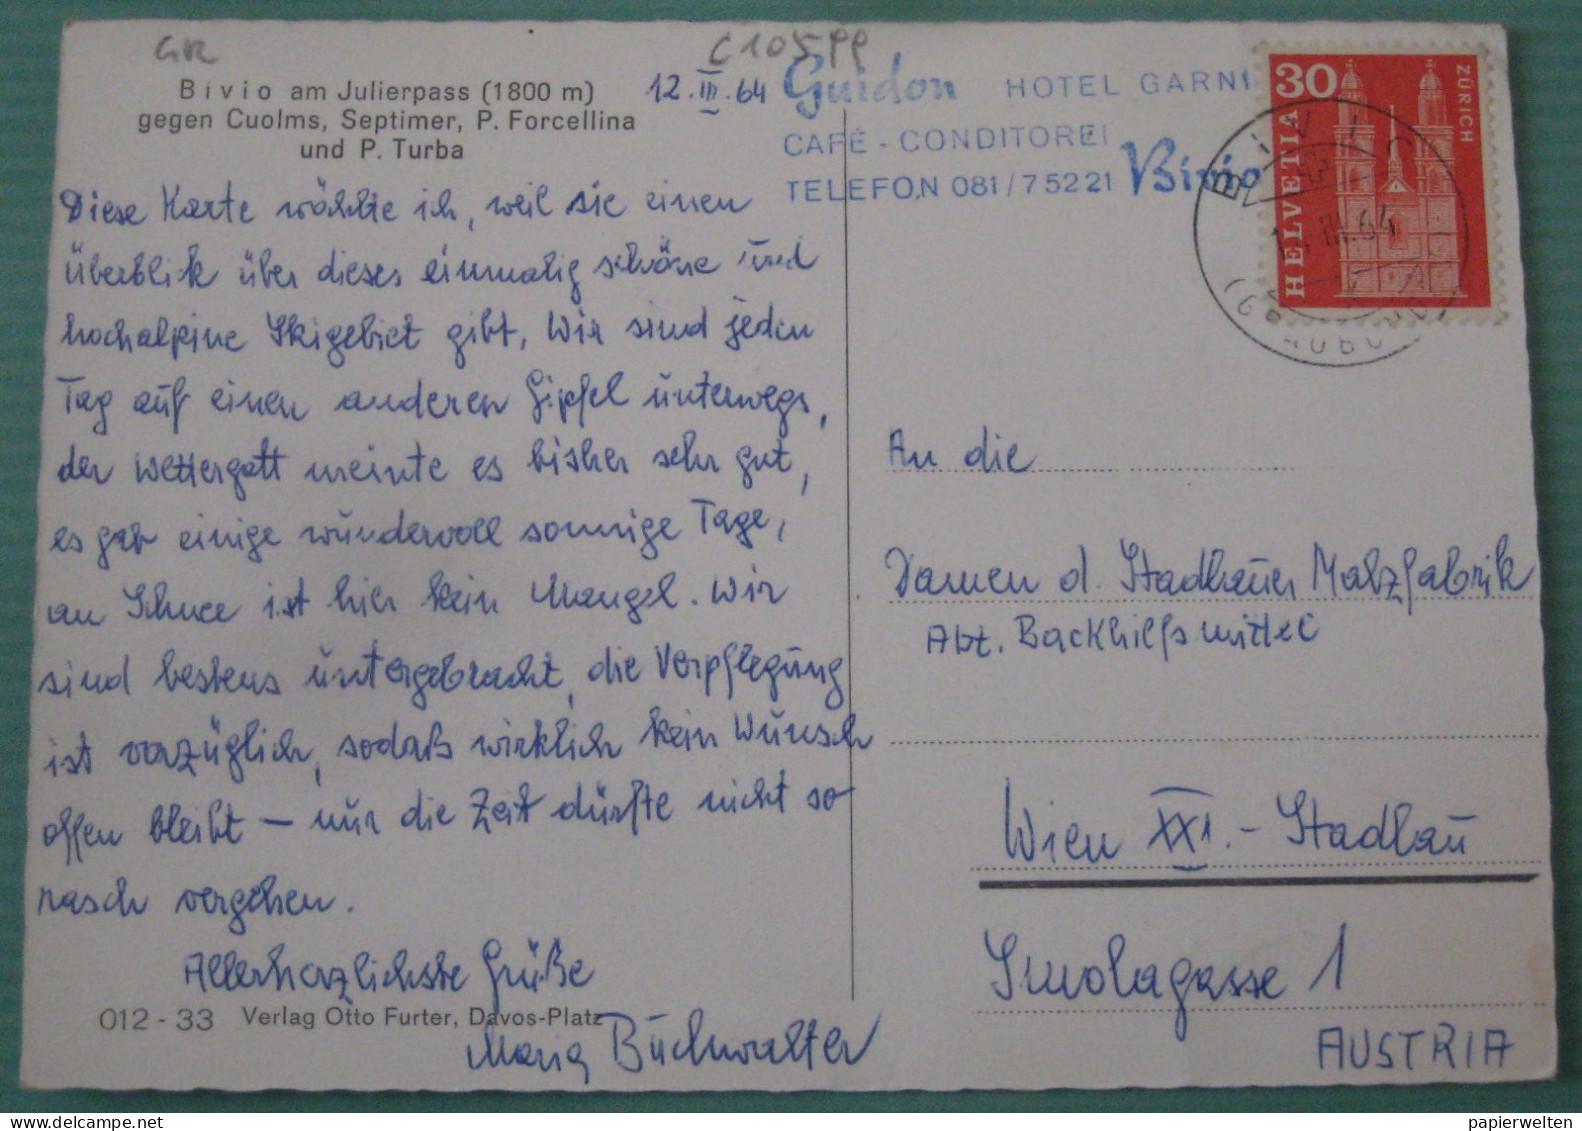 GR
C105PP
Bivio am Julierpass (1800 m)
gegen Cuolms, Septimer, P. Forcellina
und P. Turba
12.III.64
Guidon HOTEL GARNI
CAFÉ - CONDITOREI
TELEFON 081/7 52 21 Bivio
30
ZÜRICH
HELVETIA
BIVIO
III.64
Diese Karte wählte ich, weil sie einen
Überblick über dieses einmalig schöne und
hochalpine Skigebiet gibt. Wir sind jeden
Tag auf einen anderen Gipfel unterwegs,
der Wettergott meinte es bisher sehr gut,
es gab einige wundervoll sonnige Tage,
an Schnee ist hier kein Mangel. Wir
sind bestens untergebracht, die Verpflegung
ist vorzüglich, sodaß wirklich kein Wunsch
offen bleibt – nur die Zeit dürfte nicht so
rasch vergehen.
Allerherzlichste Grüße
Maria Buchwalter
012 - 33 Verlag Otto Furter, Davos-Platz
An die
Damen d. Stadlauer Malzfabrik
Abt. Backhilfsmittel
Wien XXI. - Stadlau
Smolagasse 1
AUSTRIA
papierwelten